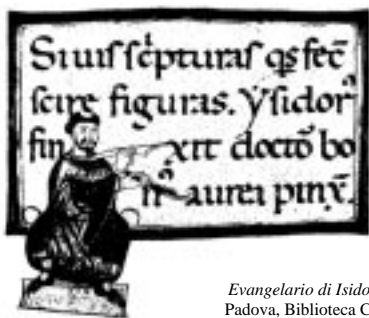 Siuiſ ſc̓pturaſ q̃s fec̄
ſcire figuras. Yſidor᷒
fin xit docto᷒ bo
n᷒ aurea pinx̄.
Evangelario di Isido
Padova, Biblioteca C